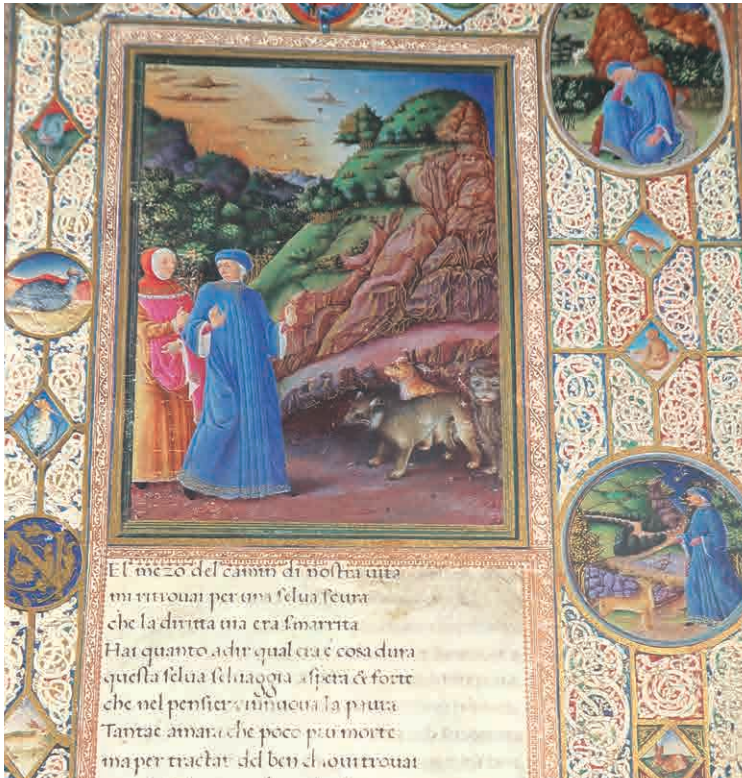 El mezo del camin di nostra uita
mi ritrouai per una selua scura
che la diritta uia era smarrita
Hai quanto adir qual era e cosa dura
questa selua seluaggia aspera & forte
che nel pensier rinuoua la paura
Tanta e amara che poco piu morte
ma per tractar del ben chio ui trouai